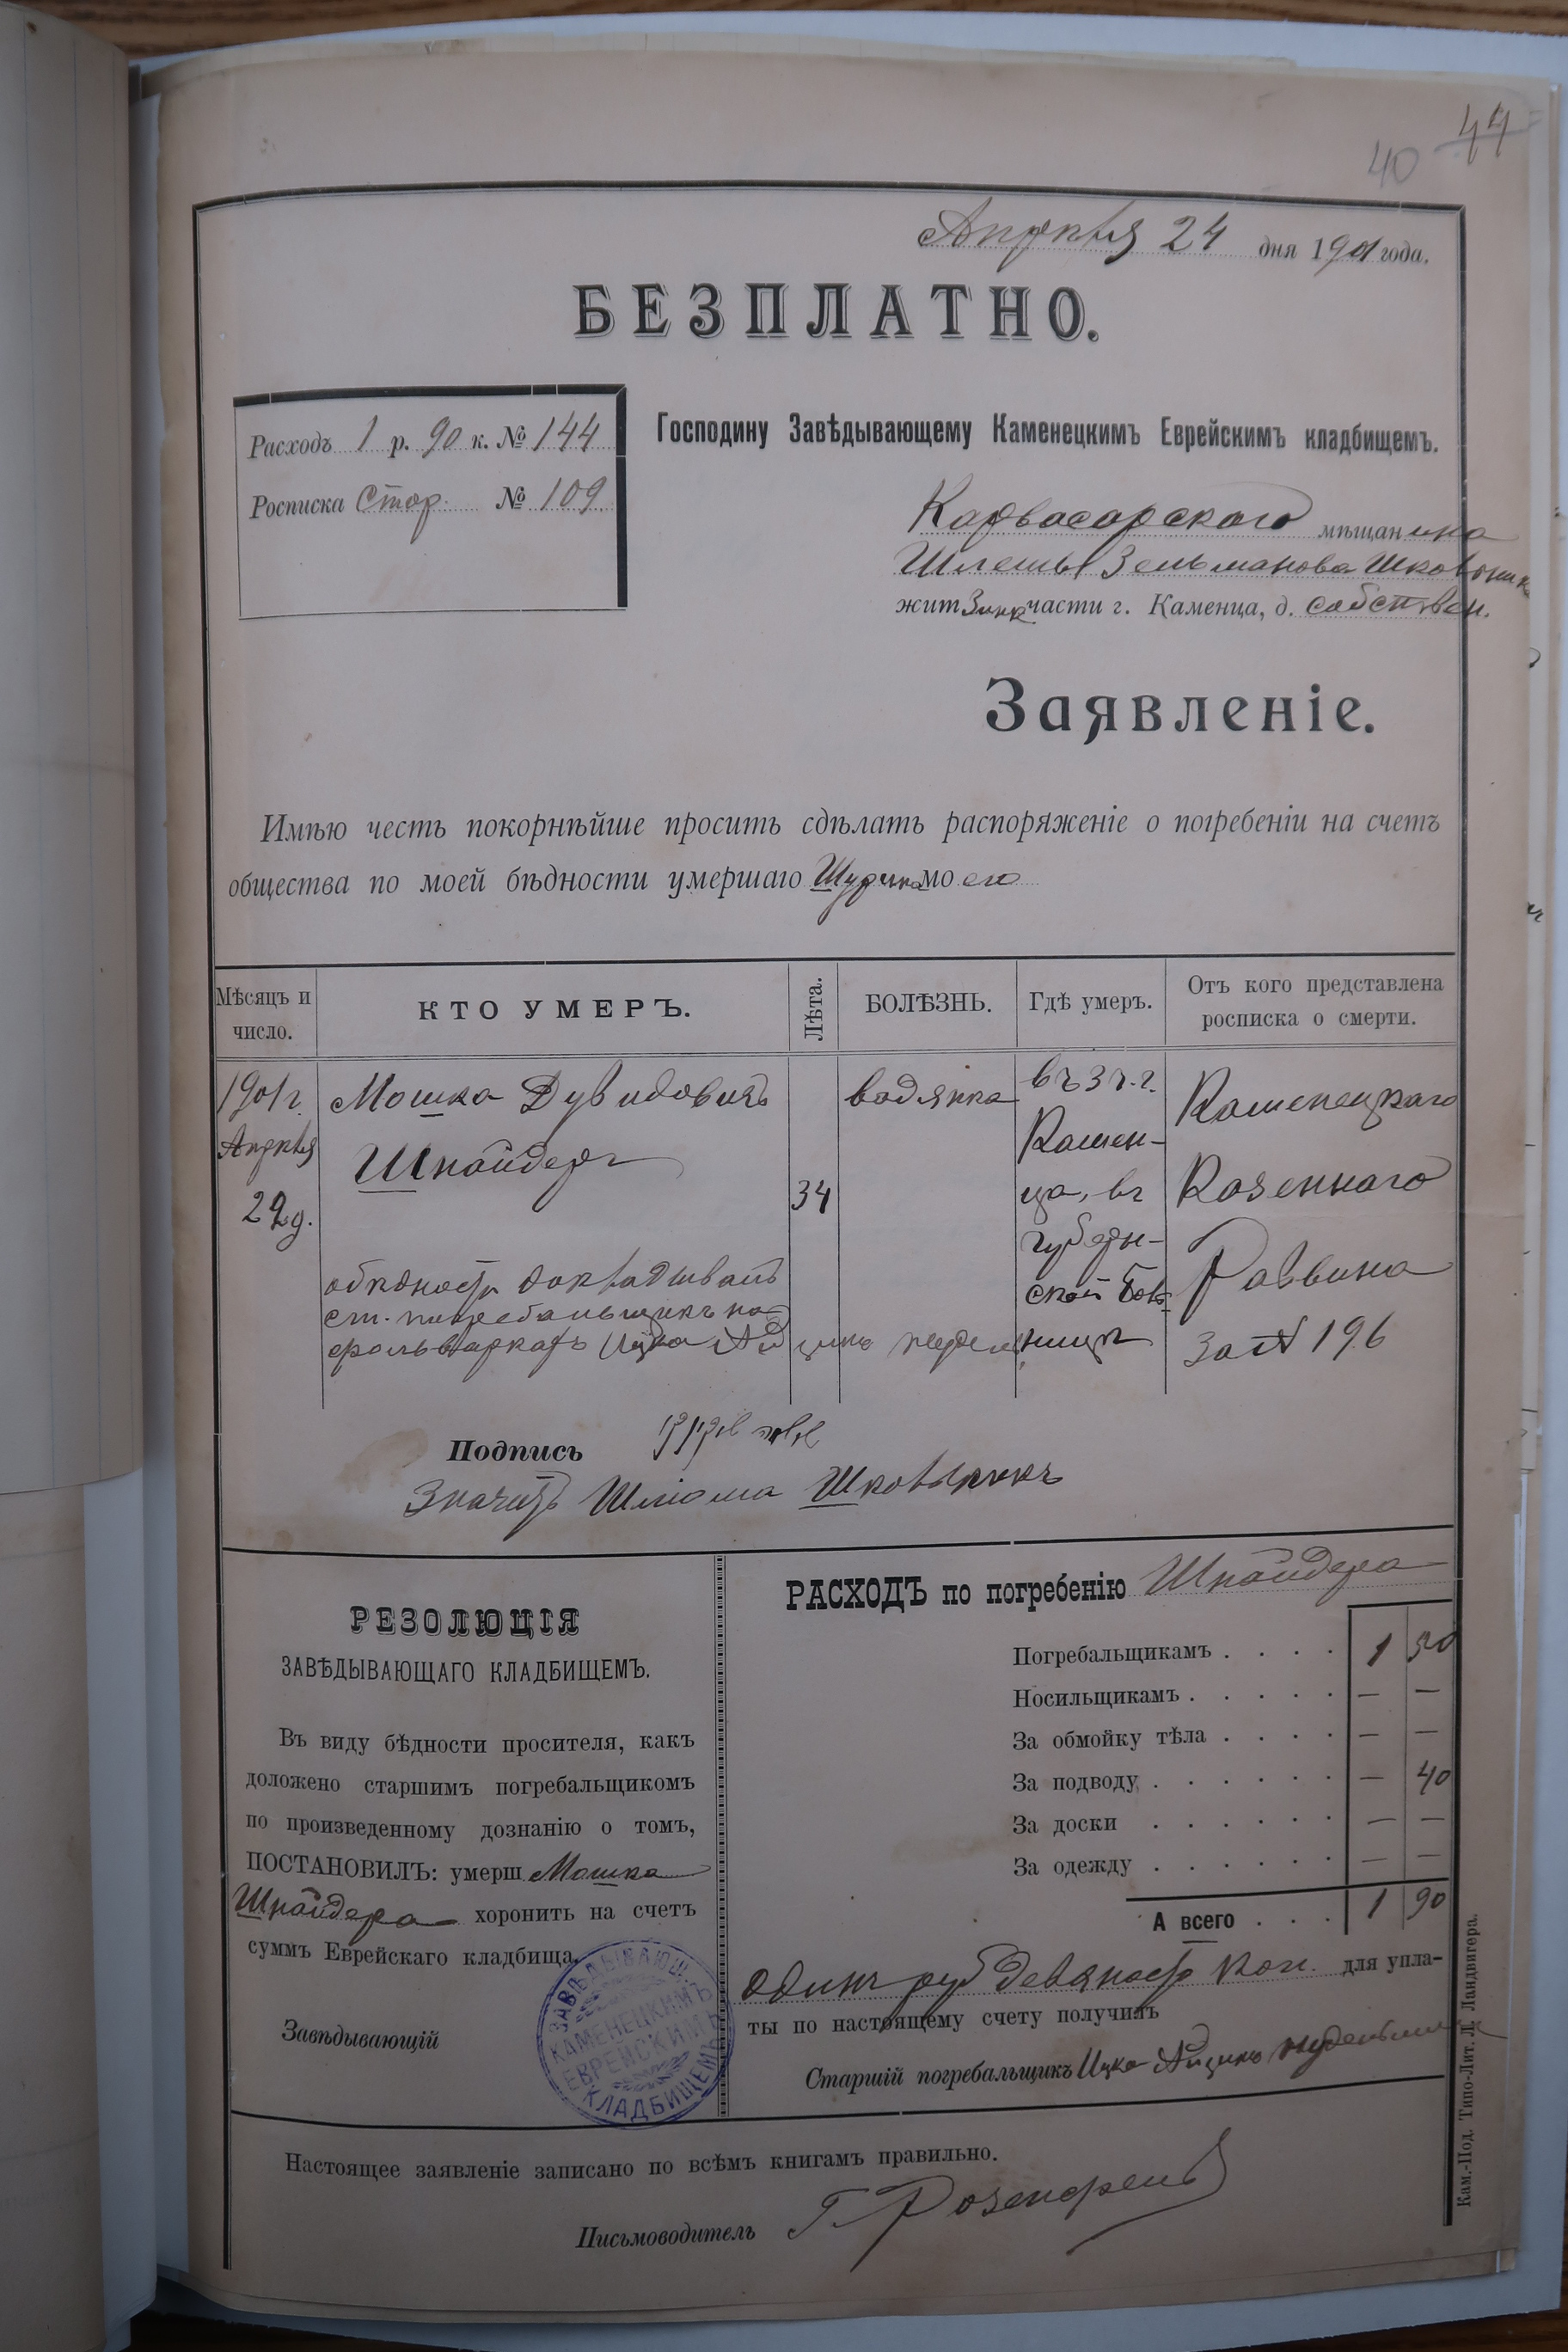 44
40
Апрѣля 24 дня 1901 года.
БЕЗПЛАТНО.
Расходъ 1 р. 90 к. № 144
Росписка Стор. № 109
Господину Завѣдывающему Каменецкимъ Еврейскимъ кладбищемъ.
Карвасарского мѣщанина
Шлемы Зельманова
жит Зинк части г. Каменца, д. собствен.
Заявленіе.
Имѣю честь покорнѣйше просить сдѣлать распоряженіе о погребеніи на счетъ
общества по моей бѣдности умершаго Шурина моего
Мѣсяцъ и число.
КТО УМЕРЪ.
Лѣта.
БОЛѢЗНЬ.
Гдѣ умеръ.
Отъ кого представлена росписка о смерти.
1901 г.
Апрѣля
22 д.
Мошка Дувидовичъ
Шнайдеръ
34
водянка
въ г.
Камен-
ца, въ
губерн-
ской Боль-
ницѣ
Каменецкаго
Казеннаго
Раввина
за № 196
о бѣдности докладываетъ
ст. погребальщикъ на
фольваркахъ Ицко Айзикъ
Подпись
Значитъ Шліома
РЕЗОЛЮЦІЯ
ЗАВѢДЫВАЮЩАГО КЛАДБИЩЕМЪ.
Въ виду бѣдности просителя, какъ
доложено старшимъ погребальщикомъ
по произведенному дознанію о томъ,
ПОСТАНОВИЛЪ: умерш Мошка
Шнайдера хоронить на счетъ
суммъ Еврейскаго кладбища.
Завѣдывающій
ЗАВѢДЫВАЮЩ.
КАМЕНЕЦКИМЪ
ЕВРЕЙСКИМЪ
КЛАДБИЩЕМЪ
РАСХОДЪ по погребенію Шнайдера
Погребальщикамъ . . . . 1 50
Носильщикамъ . . . . . — —
За обмойку тѣла . . . . — —
За подводу . . . . . . — 40
За доски . . . . . . — —
За одежду . . . . . . — —
А всего . . . 1 90
Одинъ руб девяносто коп. для упла-
ты по настоящему счету получилъ
Старшій погребальщикъ Ицко Айзикъ
Настоящее заявленіе записано по всѣмъ книгамъ правильно.
Письмоводитель Г. Розенфельд
Кам.-Под. Типо-Лит. Л. Ландвигера.